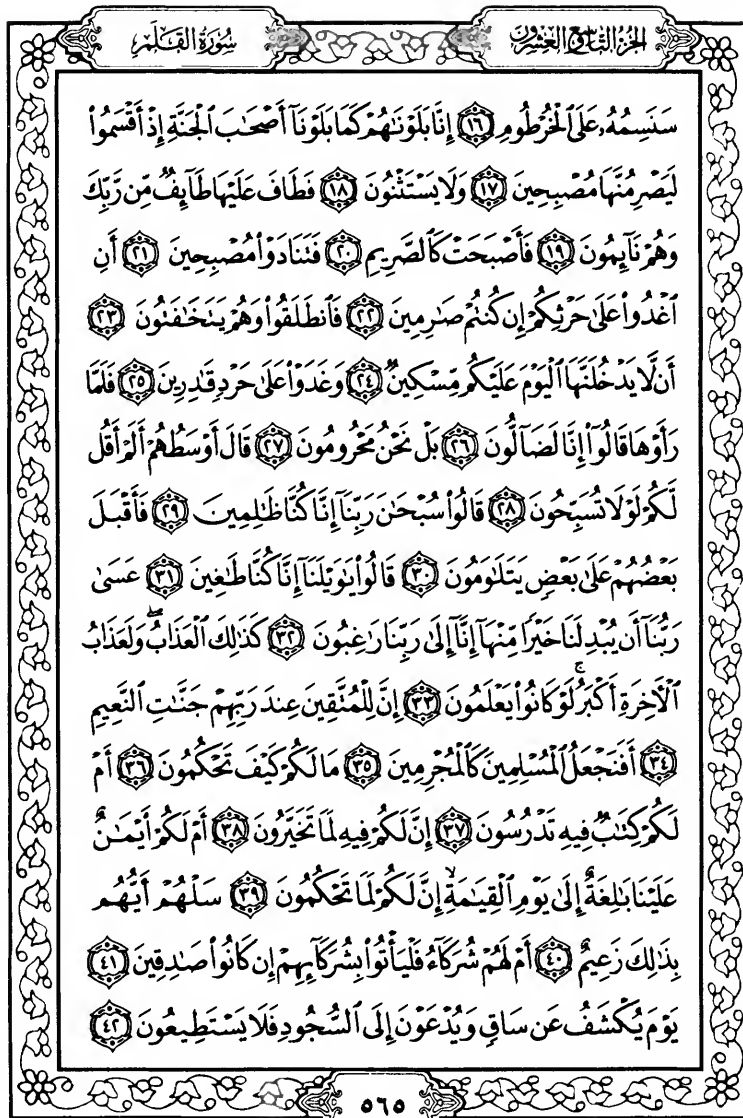 الجزء التاسع والعشرون
سورة القلم
سَنَسِمُهُۥ عَلَى ٱلْخُرْطُومِ ١٦ إِنَّا بَلَوْنَٰهُمْ كَمَا بَلَوْنَآ أَصْحَٰبَ ٱلْجَنَّةِ إِذْ أَقْسَمُوا۟
لَيَصْرِمُنَّهَا مُصْبِحِينَ ١٧ وَلَا يَسْتَثْنُونَ ١٨ فَطَافَ عَلَيْهَا طَآئِفٌ مِّن رَّبِّكَ
وَهُمْ نَآئِمُونَ ١٩ فَأَصْبَحَتْ كَٱلصَّرِيمِ ٢٠ فَتَنَادَوْا۟ مُصْبِحِينَ ٢١ أَنِ
ٱغْدُوا۟ عَلَىٰ حَرْثِكُمْ إِن كُنتُمْ صَٰرِمِينَ ٢٢ فَٱنطَلَقُوا۟ وَهُمْ يَتَخَٰفَتُونَ ٢٣
أَن لَّا يَدْخُلَنَّهَا ٱلْيَوْمَ عَلَيْكُم مِّسْكِينٌ ٢٤ وَغَدَوْا۟ عَلَىٰ حَرْدٍ قَٰدِرِينَ ٢٥ فَلَمَّا
رَأَوْهَا قَالُوٓا۟ إِنَّا لَضَآلُّونَ ٢٦ بَلْ نَحْنُ مَحْرُومُونَ ٢٧ قَالَ أَوْسَطُهُمْ أَلَمْ أَقُل
لَّكُمْ لَوْلَا تُسَبِّحُونَ ٢٨ قَالُوا۟ سُبْحَٰنَ رَبِّنَآ إِنَّا كُنَّا ظَٰلِمِينَ ٢٩ فَأَقْبَلَ
بَعْضُهُمْ عَلَىٰ بَعْضٍ يَتَلَٰوَمُونَ ٣٠ قَالُوا۟ يَٰوَيْلَنَآ إِنَّا كُنَّا طَٰغِينَ ٣١ عَسَىٰ
رَبُّنَآ أَن يُبْدِلَنَا خَيْرًا مِّنْهَآ إِنَّآ إِلَىٰ رَبِّنَا رَٰغِبُونَ ٣٢ كَذَٰلِكَ ٱلْعَذَابُ ۖ وَلَعَذَابُ
ٱلْءَاخِرَةِ أَكْبَرُ ۚ لَوْ كَانُوا۟ يَعْلَمُونَ ٣٣ إِنَّ لِلْمُتَّقِينَ عِندَ رَبِّهِمْ جَنَّٰتِ ٱلنَّعِيمِ
٣٤ أَفَنَجْعَلُ ٱلْمُسْلِمِينَ كَٱلْمُجْرِمِينَ ٣٥ مَا لَكُمْ كَيْفَ تَحْكُمُونَ ٣٦ أَمْ
لَكُمْ كِتَٰبٌ فِيهِ تَدْرُسُونَ ٣٧ إِنَّ لَكُمْ فِيهِ لَمَا تَخَيَّرُونَ ٣٨ أَمْ لَكُمْ أَيْمَٰنٌ
عَلَيْنَا بَٰلِغَةٌ إِلَىٰ يَوْمِ ٱلْقِيَٰمَةِ ۙ إِنَّ لَكُمْ لَمَا تَحْكُمُونَ ٣٩ سَلْهُمْ أَيُّهُم
بِذَٰلِكَ زَعِيمٌ ٤٠ أَمْ لَهُمْ شُرَكَآءُ فَلْيَأْتُوا۟ بِشُرَكَآئِهِمْ إِن كَانُوا۟ صَٰدِقِينَ ٤١
يَوْمَ يُكْشَفُ عَن سَاقٍ وَيُدْعَوْنَ إِلَى ٱلسُّجُودِ فَلَا يَسْتَطِيعُونَ ٤٢
٥٦٥